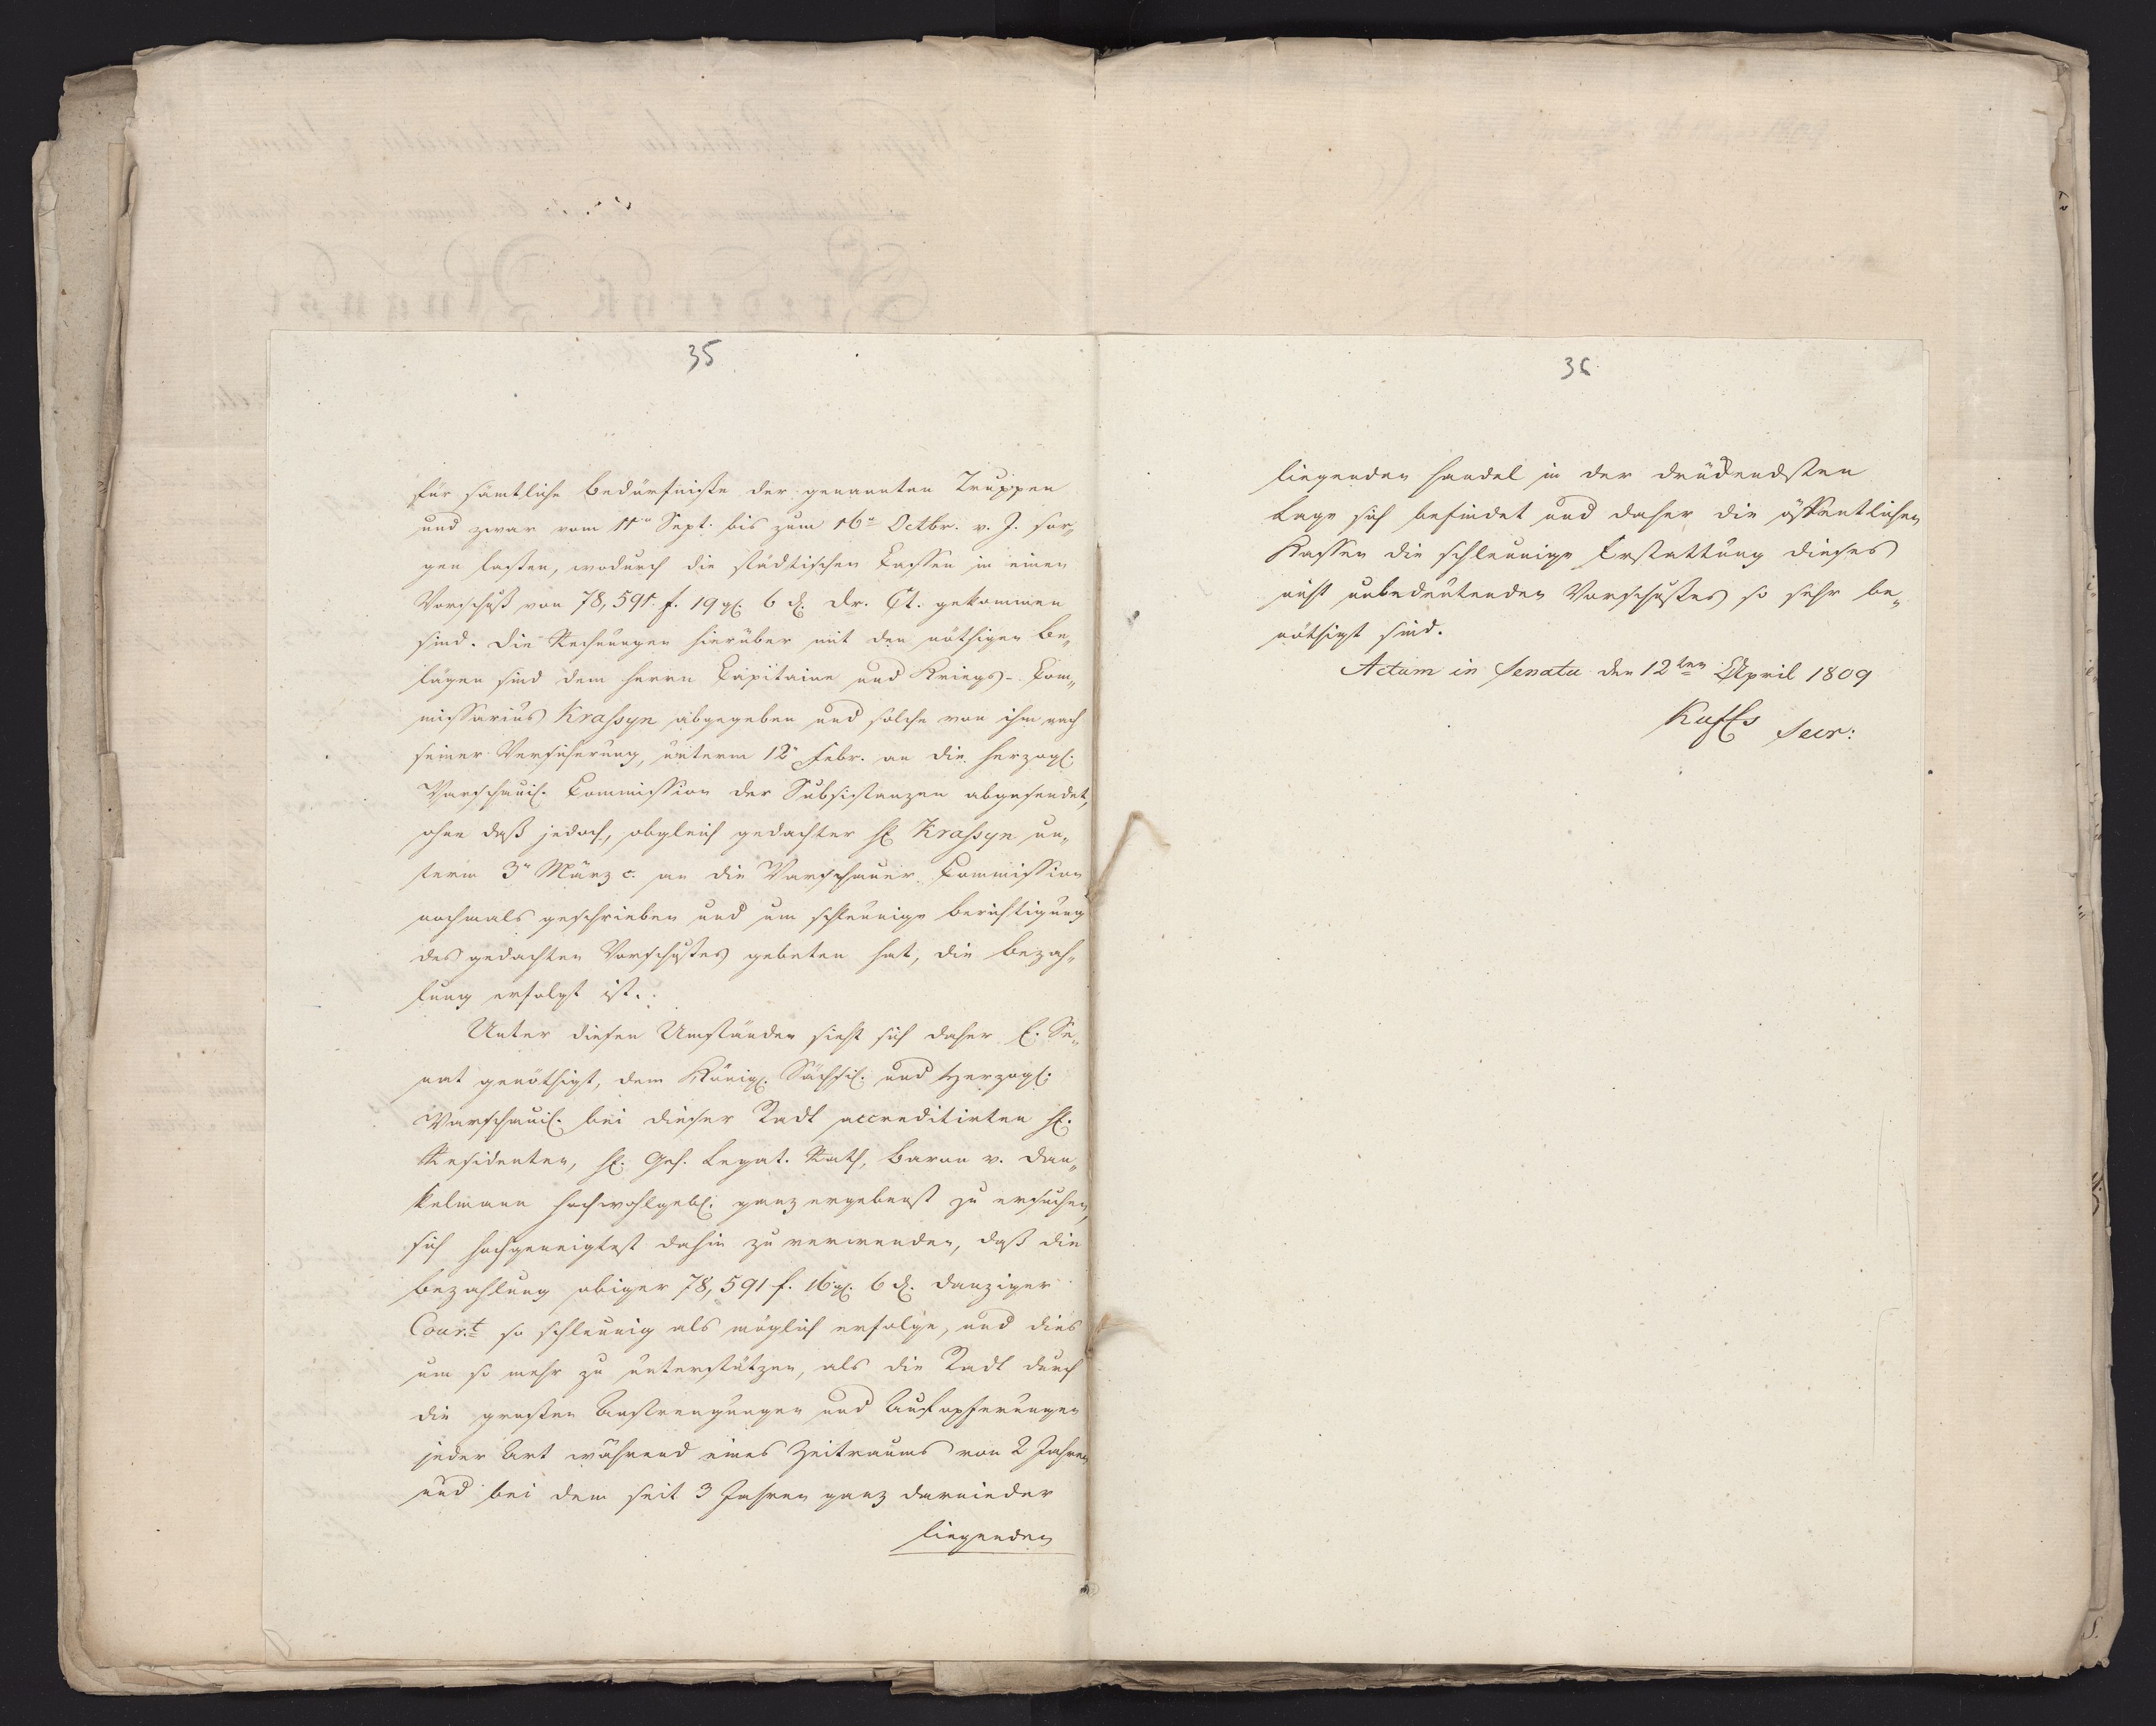 35
für sämtliche Bedürfniße der genannten Truppen
und zwar vom 11n Sept. bis zum 16n Octbr. v. J. sor„
gen laßen, wodurch die städtischen Cassen in einen
Vorschuß von 78,591 f. 19 gl. 6 d. Dr. Ct. gekommen
sind. Die Rechnungen hierüber mit den nöthigen Be„
lägen sind dem Herrn Capitaine und Kriegs-Com„
missarius Krassyn abgegeben und solche von ihm nach
seiner Versicherung, unterm 12n Febr. an die Herzogl.
Warschauis. Commission der Subsistanzen abgesendet,
ohne daß jedoch, obgleich gedachter H. Krassyn un„
term 3n März c. an die Warschauer Commission
nochmals geschrieben und um schleunige Berichtigung
des gedachten Vorschußes gebeten hat, die Bezah„
lung erfolgt ist.
Unter diesen Umständen sieht sich daher E. Se„
nat genöthigt, dem Königl. Sächsis. und Herzogl.
Warschauis. bei dieser Stadt accreditirten H.
Residenten, H. Geh. Legat. Rath, Baron v. Dan„
kelmann Hochwohlgeb. ganz ergebenst zu ersuchen,
sich hochgeneigtest dahin zu verwenden, daß die
Bezahlung obiger 78,591 f. 16 gl. 6 d. Danziger
Cour.t so schleunig als möglich erfolge, und dies
um so mehr zu unterstützen, als die Stadt durch
die großen Anstrengungen und Aufopferungen
jeder Art während eines Zeitraums von 2 Jahren
und bei dem seit 3 Jahren ganz darnieder
liegenden
36
liegenden Handel in der drückendsten
Lage sich befindet und daher die öffentlichen
Kassen die schleunige Erstattung dieses
nicht unbedeutenden Vorschußes so sehr be„
nöthigt sind.
Actum in Senatu den 12ten April 1809
Secr: